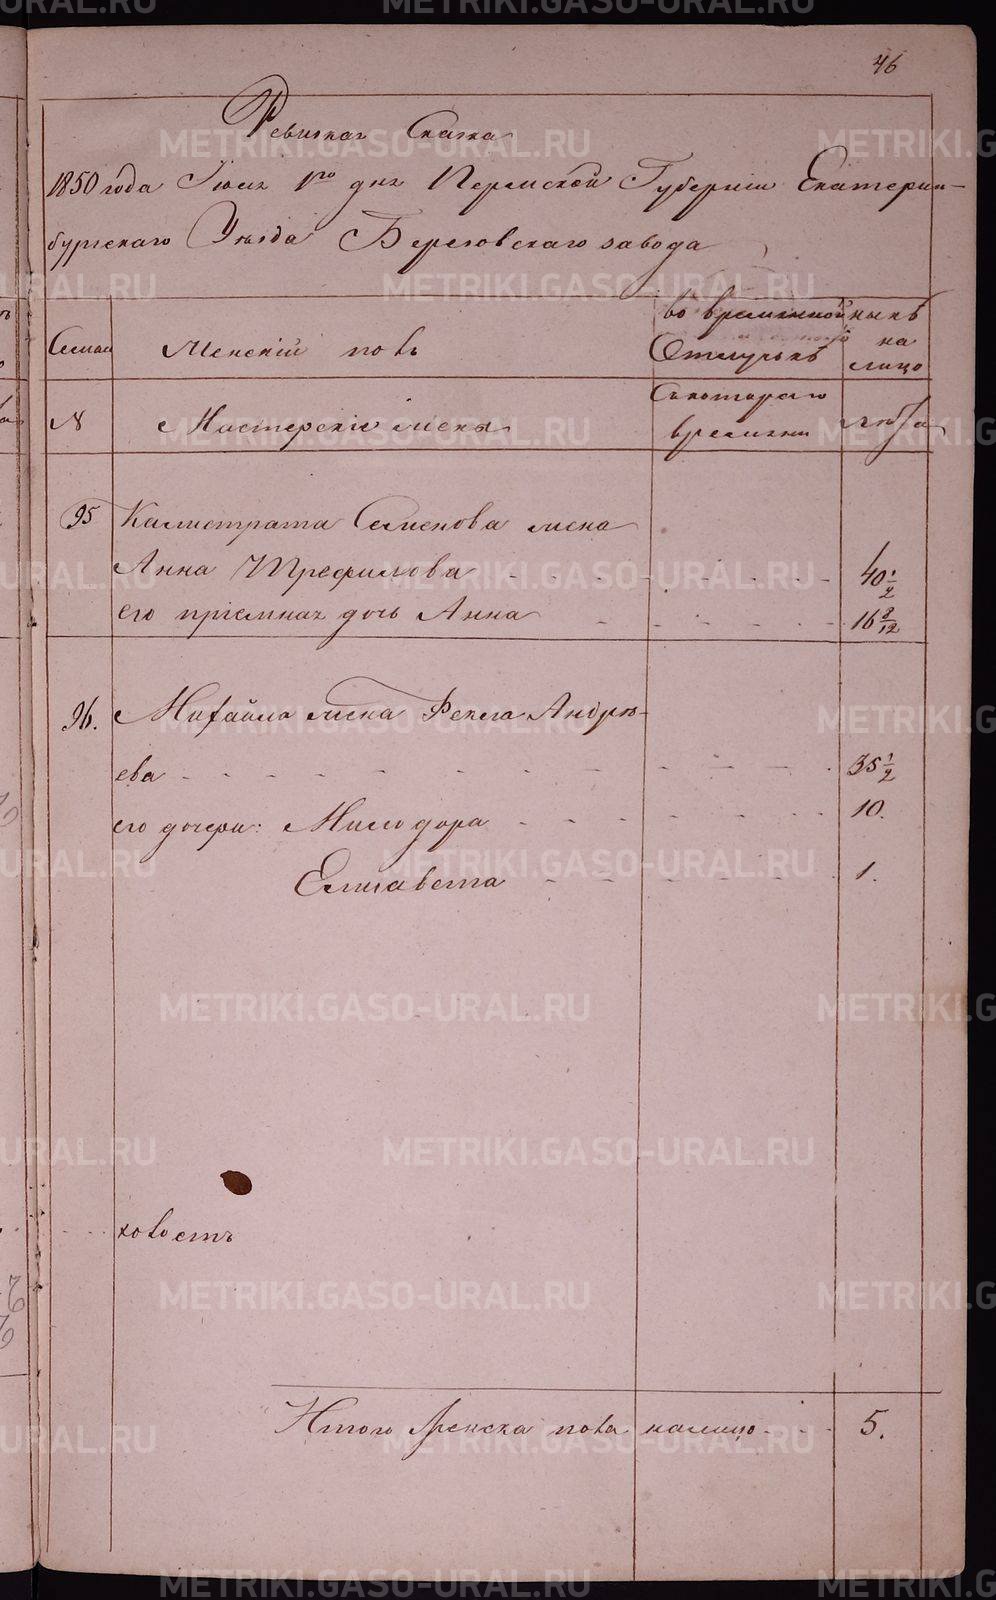 46
Ревизская Сказка
1850 года Июля 1го дня Пермской Губернии Екатерин-
бургскаго Уезда Березовскаго завода
Семьи
Женский полъ
во временной
Отлучкѣ
нынѣ
на
лицо
№
Мастерские жены
Съ котораго
времени
лѣта
95
Калистрата Семенова жена
Анна Трефилова - - - - - - 40 1/2
его приемная дочь Анна - - - - - 16 8/12
96.
Михайла жена Фекла Андрѣ-
ева - - - - - - - - - - 35 1/2
его дочери: Милодора - - - - - - - 10.
Елисавета - - - - - - 1.
ховость
Итого Женска пола налицо - - - 5.
METRIKI.GASO-URAL.RU